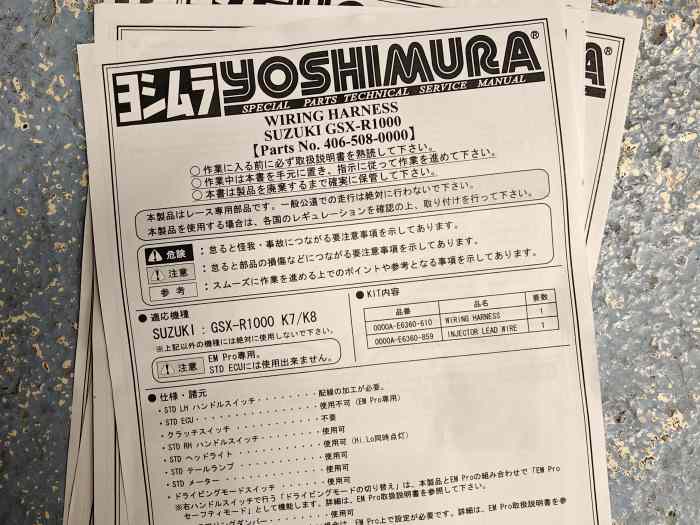 ヨシムラ YOSHIMURA®
SPECIAL PARTS TECHNICAL SERVICE MANUAL
WIRING HARNESS
SUZUKI GSX-R1000
【Parts No. 406-508-0000】
○作業に入る前に必ず取扱説明書を熟読して下さい。
○作業中は本書を手元に置き、指示に従って作業を進めて下さい。
○本書は製品を廃棄するまで確実に保管して下さい。
本製品はレース専用部品です。一般公道での走行は絶対に行わないで下さい。
本製品を使用する場合は、各国のレギュレーションを確認の上、取り付けを行って下さい。
危険 :怠ると怪我・事故につながる要注意事項を示してあります。
注意 :怠ると部品の損傷などにつながる要注意事項を示してあります。
参考 :スムーズに作業を進める上でのポイントや参考となる事項を示してあります。
●適応機種
SUZUKI : GSX-R1000 K7/K8
※上記以外の機種には絶対に使用しないで下さい。
注意 EM Pro専用。
STD ECUには使用出来ません。
●KIT内容
品番 品名 要数
0000A-E6360-610 WIRING HARNESS 1
0000A-E6360-859 INJECTOR LEAD WIRE 1
●仕様・諸元
・STD LH ハンドルスイッチ・・・・・・・・配線の加工が必要。
・STD ECU・・・・・・・・・・・・使用不可(EM Pro専用)
・クラッチスイッチ・・・・・・・・・・不要
・STD RH ハンドルスイッチ・・・・・・・・使用可
・STD ヘッドライト・・・・・・・・・・使用可(Hi.Lo同時点灯)
・STD テールランプ・・・・・・・・・・使用可
・STD メーター・・・・・・・・・・・使用可
・ドライビングモードスイッチ・・・・・・・使用可
※右ハンドルスイッチで行う「ドライビングモードの切り替え」は、本製品とEM Proの組み合わせで「EM Pro
セーフティモード」として機能します。詳細は、EM Pro取扱説明書を参照して下さい。